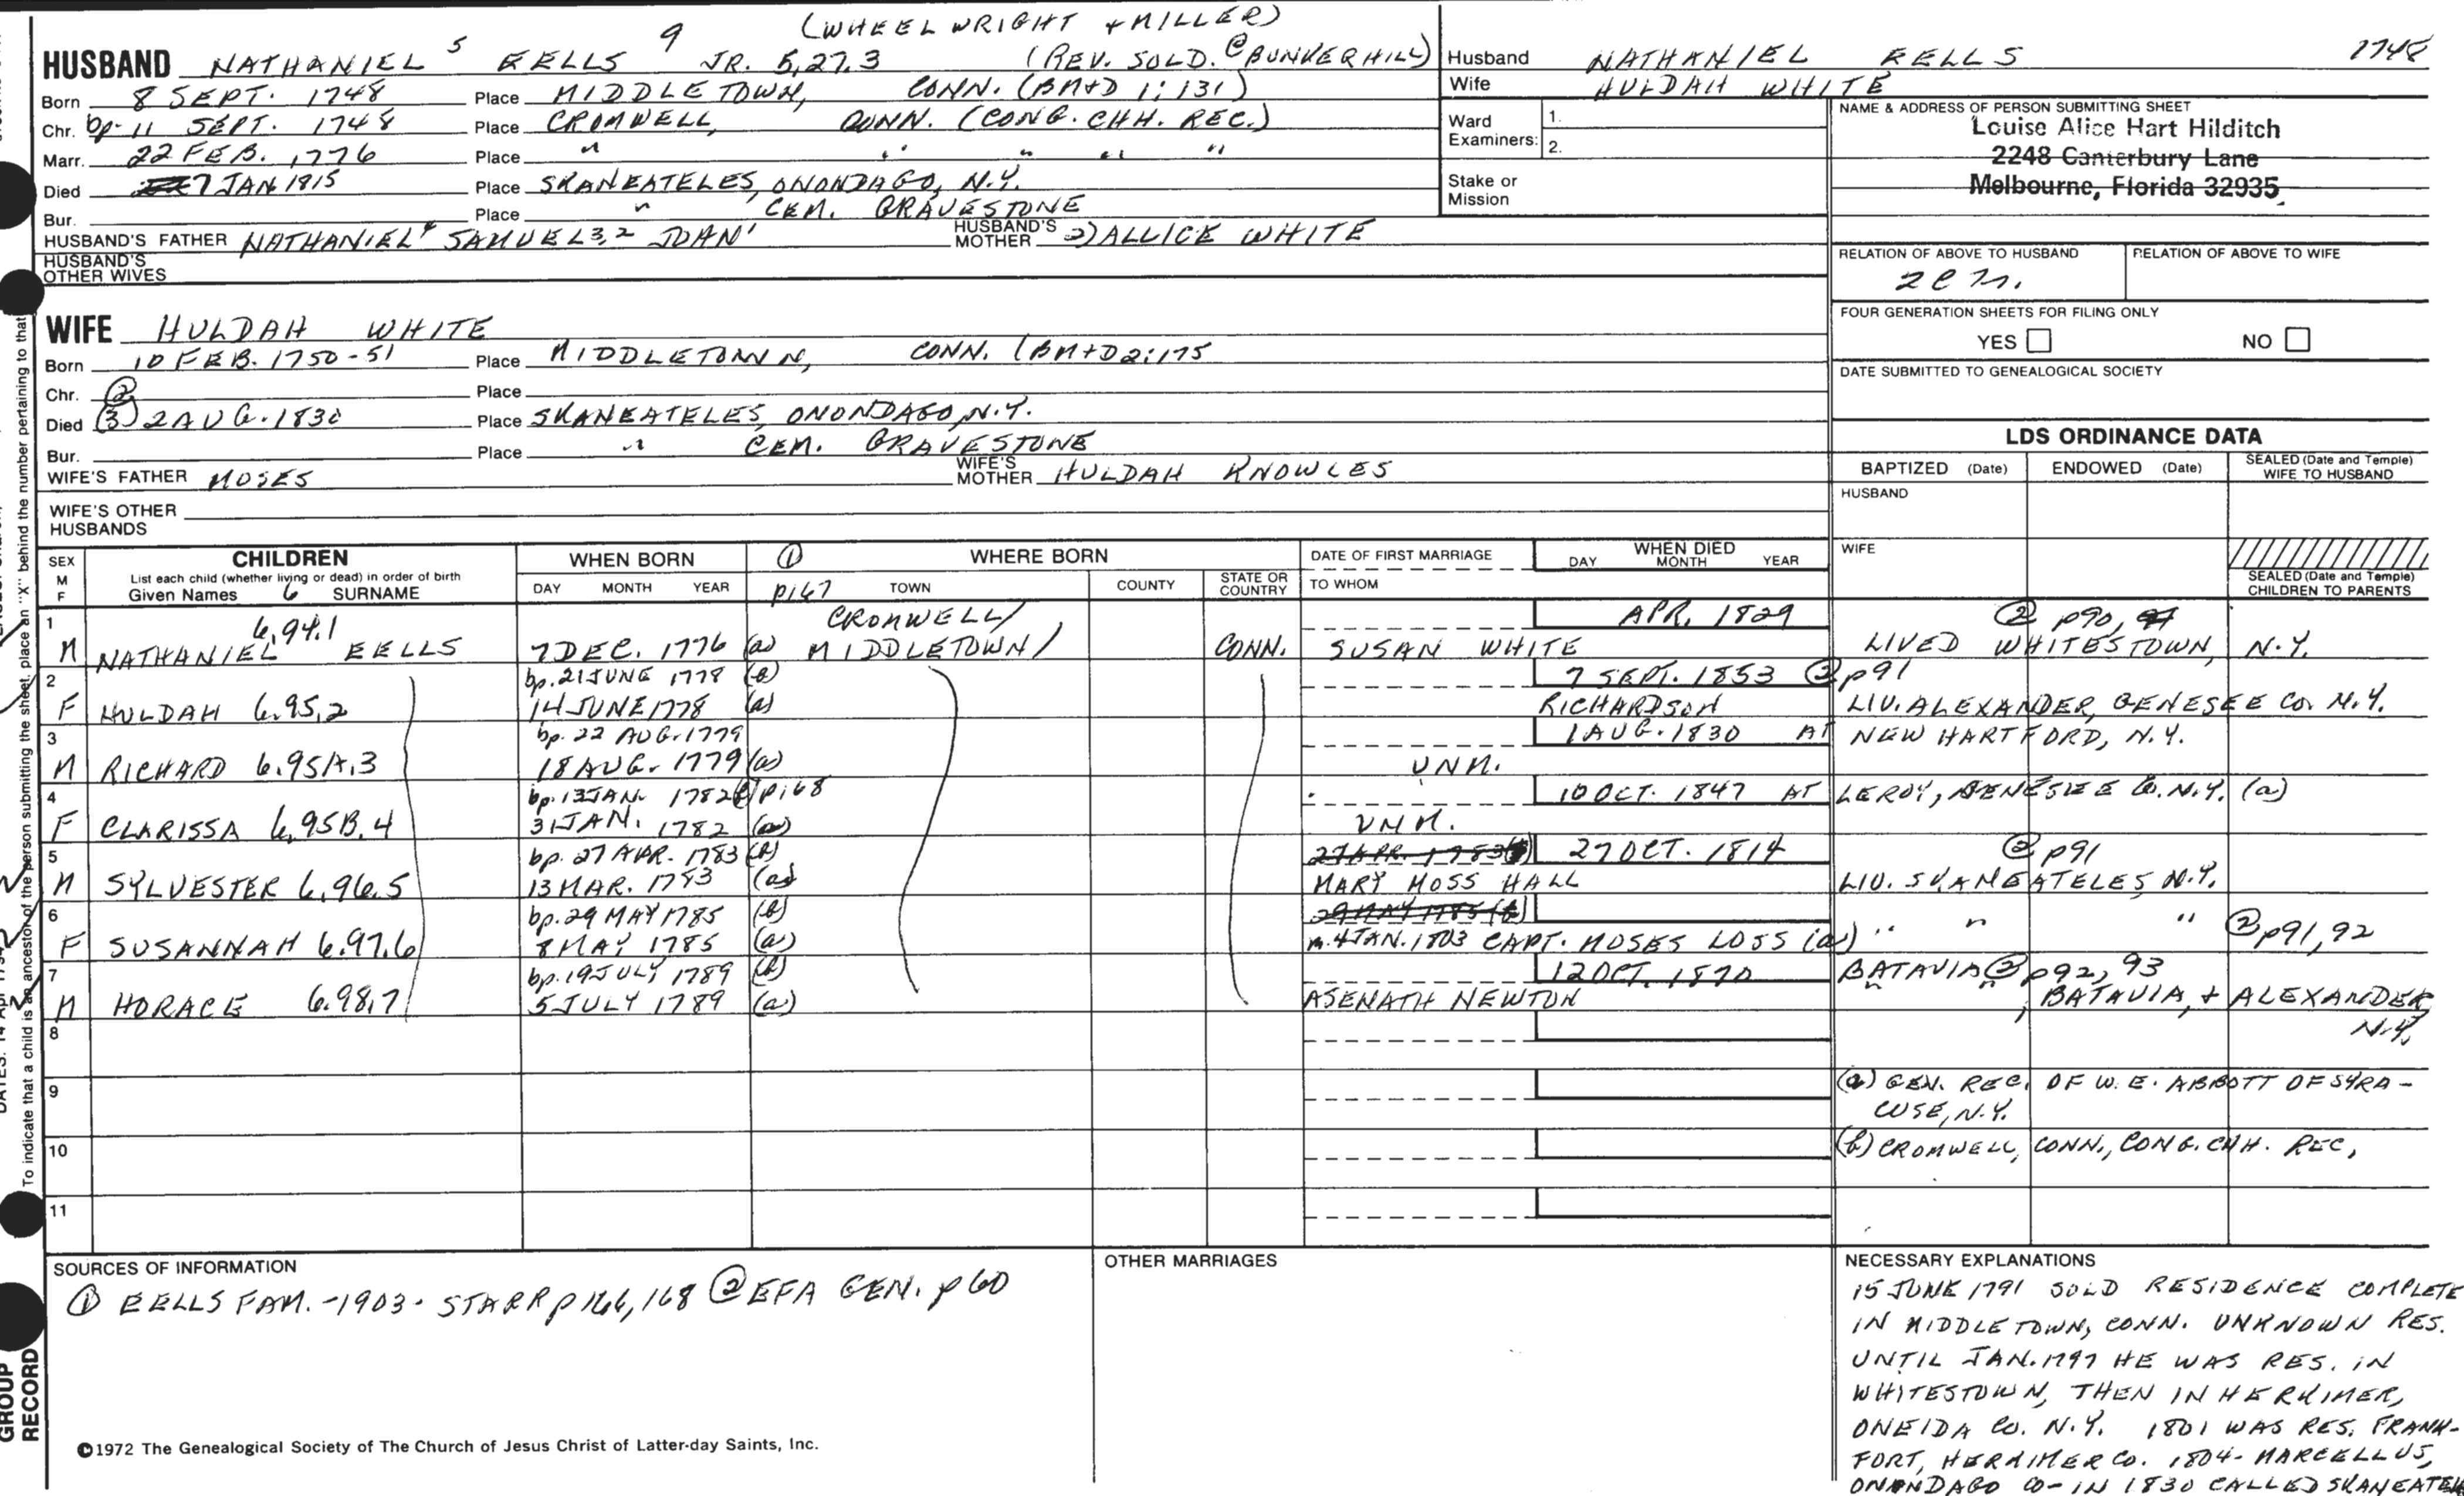 (WHEELWRIGHT + MILLER)
HUSBAND NATHANIEL 5 EELLS 9 JR. 5,27.3 (REV. SOLD. @ BUNKERHILL)
Born 8 SEPT. 1748 Place MIDDLETOWN, CONN. (BM+D 1:131)
Chr. bp. 11 SEPT. 1748 Place CROMWELL, CONN. (CONG. CHH. REC.)
Marr. 22 FEB. 1776 Place " " " " "
Died 7 JAN 1815 Place SKANEATELES, ONONDAGO, N.Y.
Bur. Place " CEM. GRAVESTONE
HUSBAND'S FATHER NATHANIEL 4 SAMUEL 3,2 JOHN 1 HUSBAND'S MOTHER 2) ALLICE WHITE
HUSBAND'S OTHER WIVES
Husband NATHANIEL EELLS 1748
Wife HULDAH WHITE
Ward Examiners: 1.
2.
Stake or Mission
NAME & ADDRESS OF PERSON SUBMITTING SHEET
Louise Alice Hart Hilditch
2248 Canterbury Lane
Melbourne, Florida 32935
RELATION OF ABOVE TO HUSBAND RELATION OF ABOVE TO WIFE
FOUR GENERATION SHEETS FOR FILING ONLY
YES NO
DATE SUBMITTED TO GENEALOGICAL SOCIETY
WIFE HULDAH WHITE
Born 10 FEB. 1750-51 Place MIDDLETOWN, CONN. (BM+D 2:175
Chr. (2) Place
Died (3) 2 AUG. 1830 Place SKANEATELES, ONONDAGO, N.Y.
Bur. Place " CEM. GRAVESTONE
WIFE'S FATHER MOSES WIFE'S MOTHER HULDAH KNOWLES
WIFE'S OTHER HUSBANDS
LDS ORDINANCE DATA
BAPTIZED (Date) ENDOWED (Date) SEALED (Date and Temple) WIFE TO HUSBAND
HUSBAND
WIFE
SEALED (Date and Temple) CHILDREN TO PARENTS
SEX M F CHILDREN WHEN BORN (1) WHERE BORN DATE OF FIRST MARRIAGE WHEN DIED
List each child (whether living or dead) in order of birth
Given Names 6 SURNAME DAY MONTH YEAR p167 TOWN COUNTY STATE OR COUNTRY TO WHOM DAY MONTH YEAR
1 6,94.1 CROMWELL/ APR. 1829 (2) p90,
M NATHANIEL EELLS 7 DEC. 1776 (a) MIDDLETOWN/ CONN. SUSAN WHITE LIVED WHITESTOWN, N.Y.
2 bp. 21 JUNE 1778 (b) 7 SEPT. 1853 (2) p91
F HULDAH 6.95.2 14 JUNE 1778 (a) RICHARDSON LIV. ALEXANDER, GENESEE CO. N.Y.
3 bp. 22 AUG. 1779 1 AUG. 1830 AT NEW HARTFORD, N.Y.
M RICHARD 6.95A.3 18 AUG. 1779 (a) UNM.
4 bp. 13 JAN. 1782 (b) p168 10 OCT. 1847 AT LEROY, GENESEE CO. N.Y. (a)
F CLARISSA 6.95B.4 31 JAN. 1782 (a) UNM.
5 bp. 27 APR. 1783 (b) 27 APR. 1783 (b) 27 OCT. 1814 (2) p91
M SYLVESTER 6.96.5 13 MAR. 1783 (a) MARY MOSS HALL LIV. SKANEATELES, N.Y.
6 bp. 29 MAY 1785 (b) 29 MAY 1785 (b)
F SUSANNAH 6.97.6 8 MAY 1785 (a) m. 4 JAN. 1803 CAPT. MOSES LOSS (a) " " " (2) p91,92
7 bp. 19 JULY 1789 (b) 12 OCT. 1870 BATAVIA (2) p92,93
M HORACE 6.98.7 5 JULY 1789 (a) ASENATH NEWTON BATAVIA, + ALEXANDER, N.Y.
8
9 (a) GEN. REC. OF W. E. ABBOTT OF SYRA-
CUSE, N.Y.
10 (b) CROMWELL, CONN., CONG. CHH. REC.
11
SOURCES OF INFORMATION
(1) EELLS FAM. - 1903 - STARR p 166, 168 (2) EFA GEN. p 60
OTHER MARRIAGES
NECESSARY EXPLANATIONS
15 JUNE 1791 SOLD RESIDENCE COMPLETE
IN MIDDLETOWN, CONN. UNKNOWN RES.
UNTIL JAN. 1797 HE WAS RES. IN
WHITESTOWN, THEN IN HERKIMER,
ONEIDA CO. N.Y. 1801 WAS RES. FRANK-
FORT, HERKIMER CO. 1804- MARCELLUS,
ONONDAGO CO- IN 1830 CALLED SKANEATELES
©1972 The Genealogical Society of The Church of Jesus Christ of Latter-day Saints, Inc.
To indicate that a child is an ancestor of the person submitting the sheet, place an "X" behind the number pertaining to that
GROUP RECORD